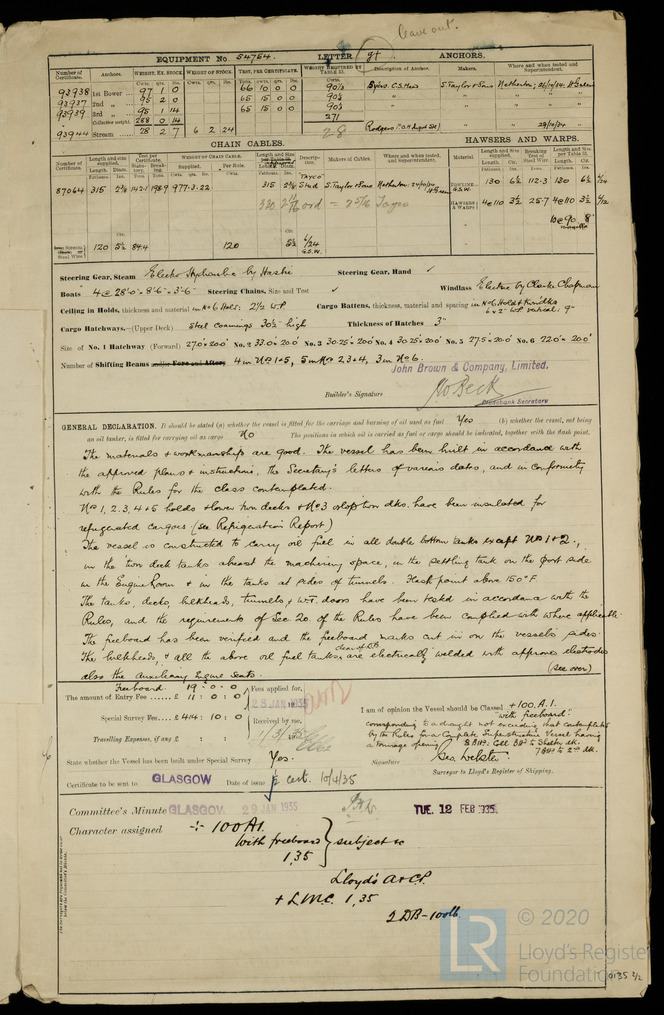 leave out.
EQUIPMENT No. 54764. LETTER gt ANCHORS.
Number of Certificate. Anchors. WEIGHT, EX. STOCK. WEIGHT OF STOCK. TEST, PER CERTIFICATE. WEIGHT REQUIRED BY TABLE 53. Description of Anchor. Makers. Where and when tested and Superintendent.
Cwts. qrs. lbs.
93938 1st Bower 97 1 0 66 10 0 0 90½ Byers C.S. Head S. Taylor & Sons Netherton
93937 2nd „ 95 2 0 65 15 0 0 90½
93939 3rd „ 95 1 14 65 15 0 0 90½
Collective weight. 288 0 14 271
93944 Stream 28 2 7 6 2 24 28 29/10/34
CHAIN CABLES. HAWSERS AND WARPS.
Number of Certificate. Length and size supplied. Test per Certificate. WEIGHT OF CHAIN CABLE. Length and Size Description. Makers of Cables. Where and when tested, and Superintendent. Material. Length and size supplied. Breaking Test of Steel Wire. Length and Size per Table 53.
Supplied. Per Rule.
87064 315 977.3.22 315 Tayco Stud S. Taylor & Sons Netherton 130 6½ 112.3 130 6½ 6/24
HAWSERS & WARPS 4@110 3½ 25.7 4@110 3½ 6/12
Steel Wire 120 5½ 84.4 120 5½ 6/24 G.S.W.
Steering Gear, Steam Electro Hydraulic by Hastie Steering Gear, Hand ✓
Boats 4 @ 28'0" × 8'6" × 3'6" Steering Chains, Size and Test ✓ Windlass Electric by Clarke Chapman
Ceiling in Holds, thickness and material in No 6 Hold: 2½ W.P. Cargo Battens, thickness, material and spacing in No 6 Hold & tweendks 6 × 2" W.P. vertical. 9"
Cargo Hatchways.—(Upper Deck) Steel coamings 30½" high Thickness of Hatches 3"
Size of No. 1 Hatchway (Forward) 27.0 × 20.0 No. 2 33.0 × 20.0 No. 3 30.25 × 20.0 No. 4 30.25 × 20.0 No. 5 27.5 × 20.0 No. 6 22.0 × 20.0
Number of Shifting Beams and/or Fore and Afters 4 in Nos 1 & 5, 5 in Nos 2, 3 & 4, 3 in No 6.
John Brown & Company, Limited.
Builder's Signature
Clydebank Secretary
GENERAL DECLARATION. It should be stated (a) whether the vessel is fitted for the carriage and burning of oil used as fuel Yes (b) whether the vessel, not being
an oil tanker, is fitted for carrying oil as cargo No The positions in which oil is carried as fuel or cargo should be indicated, together with the flash point.
The materials & workmanship are good. The vessel has been built in accordance with
the approved plans & instructions, the Secretary's letters of various dates, and in conformity
with the Rules for the class contemplated.
Nos 1, 2, 3, 4 & 5 holds & lower tween decks & No 3 orlop tween dks. have been insulated for
refrigerated cargoes (see Refrigeration Report)
The vessel is constructed to carry oil fuel in all double bottom tanks except Nos 1 & 2,
in the tween deck tanks abreast the machinery space, in the settling tank on the port side
in the Engine Room & in the tanks at sides of tunnels. Flash point above 150°F
The tanks, decks, bulkheads, tunnels & W.T. doors have been tested in accordance with the
Rules, and the requirements of Sec 20 of the Rules have been complied with where applicable.
The freeboard has been verified and the freeboard marks cut in on the vessel's sides.
The bulkheads, & all the above oil fuel tanks, clear of D.B. are electrically welded with approved electrodes
also the Auxiliary Engine Seats. (see over)
Freeboard 19 : 0 : 0
The amount of Entry Fee ...... £ 11 : 0 : 0
Fees applied for, 28 JAN 1935
Special Survey Fee .... £ 414 : 10 : 0
Received by me,
Travelling Expenses, if any £ : :
I am of opinion the Vessel should be Classed + 100.A.1.
"with freeboard"
corresponding to a draught not exceeding that contemplated
by the Rules for a Complete Superstructure Vessel having
a tonnage opening
8 BHds. Coll BHd to Shelter dk.
7 BHds to 2nd dk.
State whether the Vessel has been built under Special Survey Yes.
Signature Geo. Webster
Surveyor to Lloyd's Register of Shipping.
Certificate to be sent to GLASGOW Date of issue cert. 10/4/35
Committee's Minute GLASGOW. 29 JAN 1935 TUE. 12 FEB 1935.
Character assigned + 100A1.
With freeboard subject to
1,35
Lloyd's A & CP.
+ LMC. 1,35
2 DB - 100lb
LR © 2020
Lloyd's Register
Foundation
0135 2/2